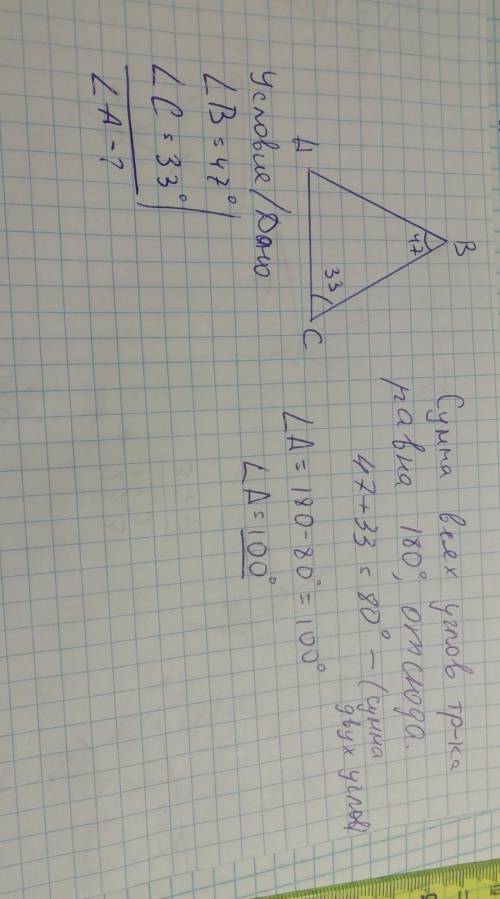 B
47
33
A
C
Условие / Дано
∠B = 47°
∠C = 33°
∠A - ?
Сумма всех углов тр-ка
равна 180°, отсюда.
47+33 = 80° – (сумма
двух углов)
∠A = 180-80° = 100°
∠A = 100°